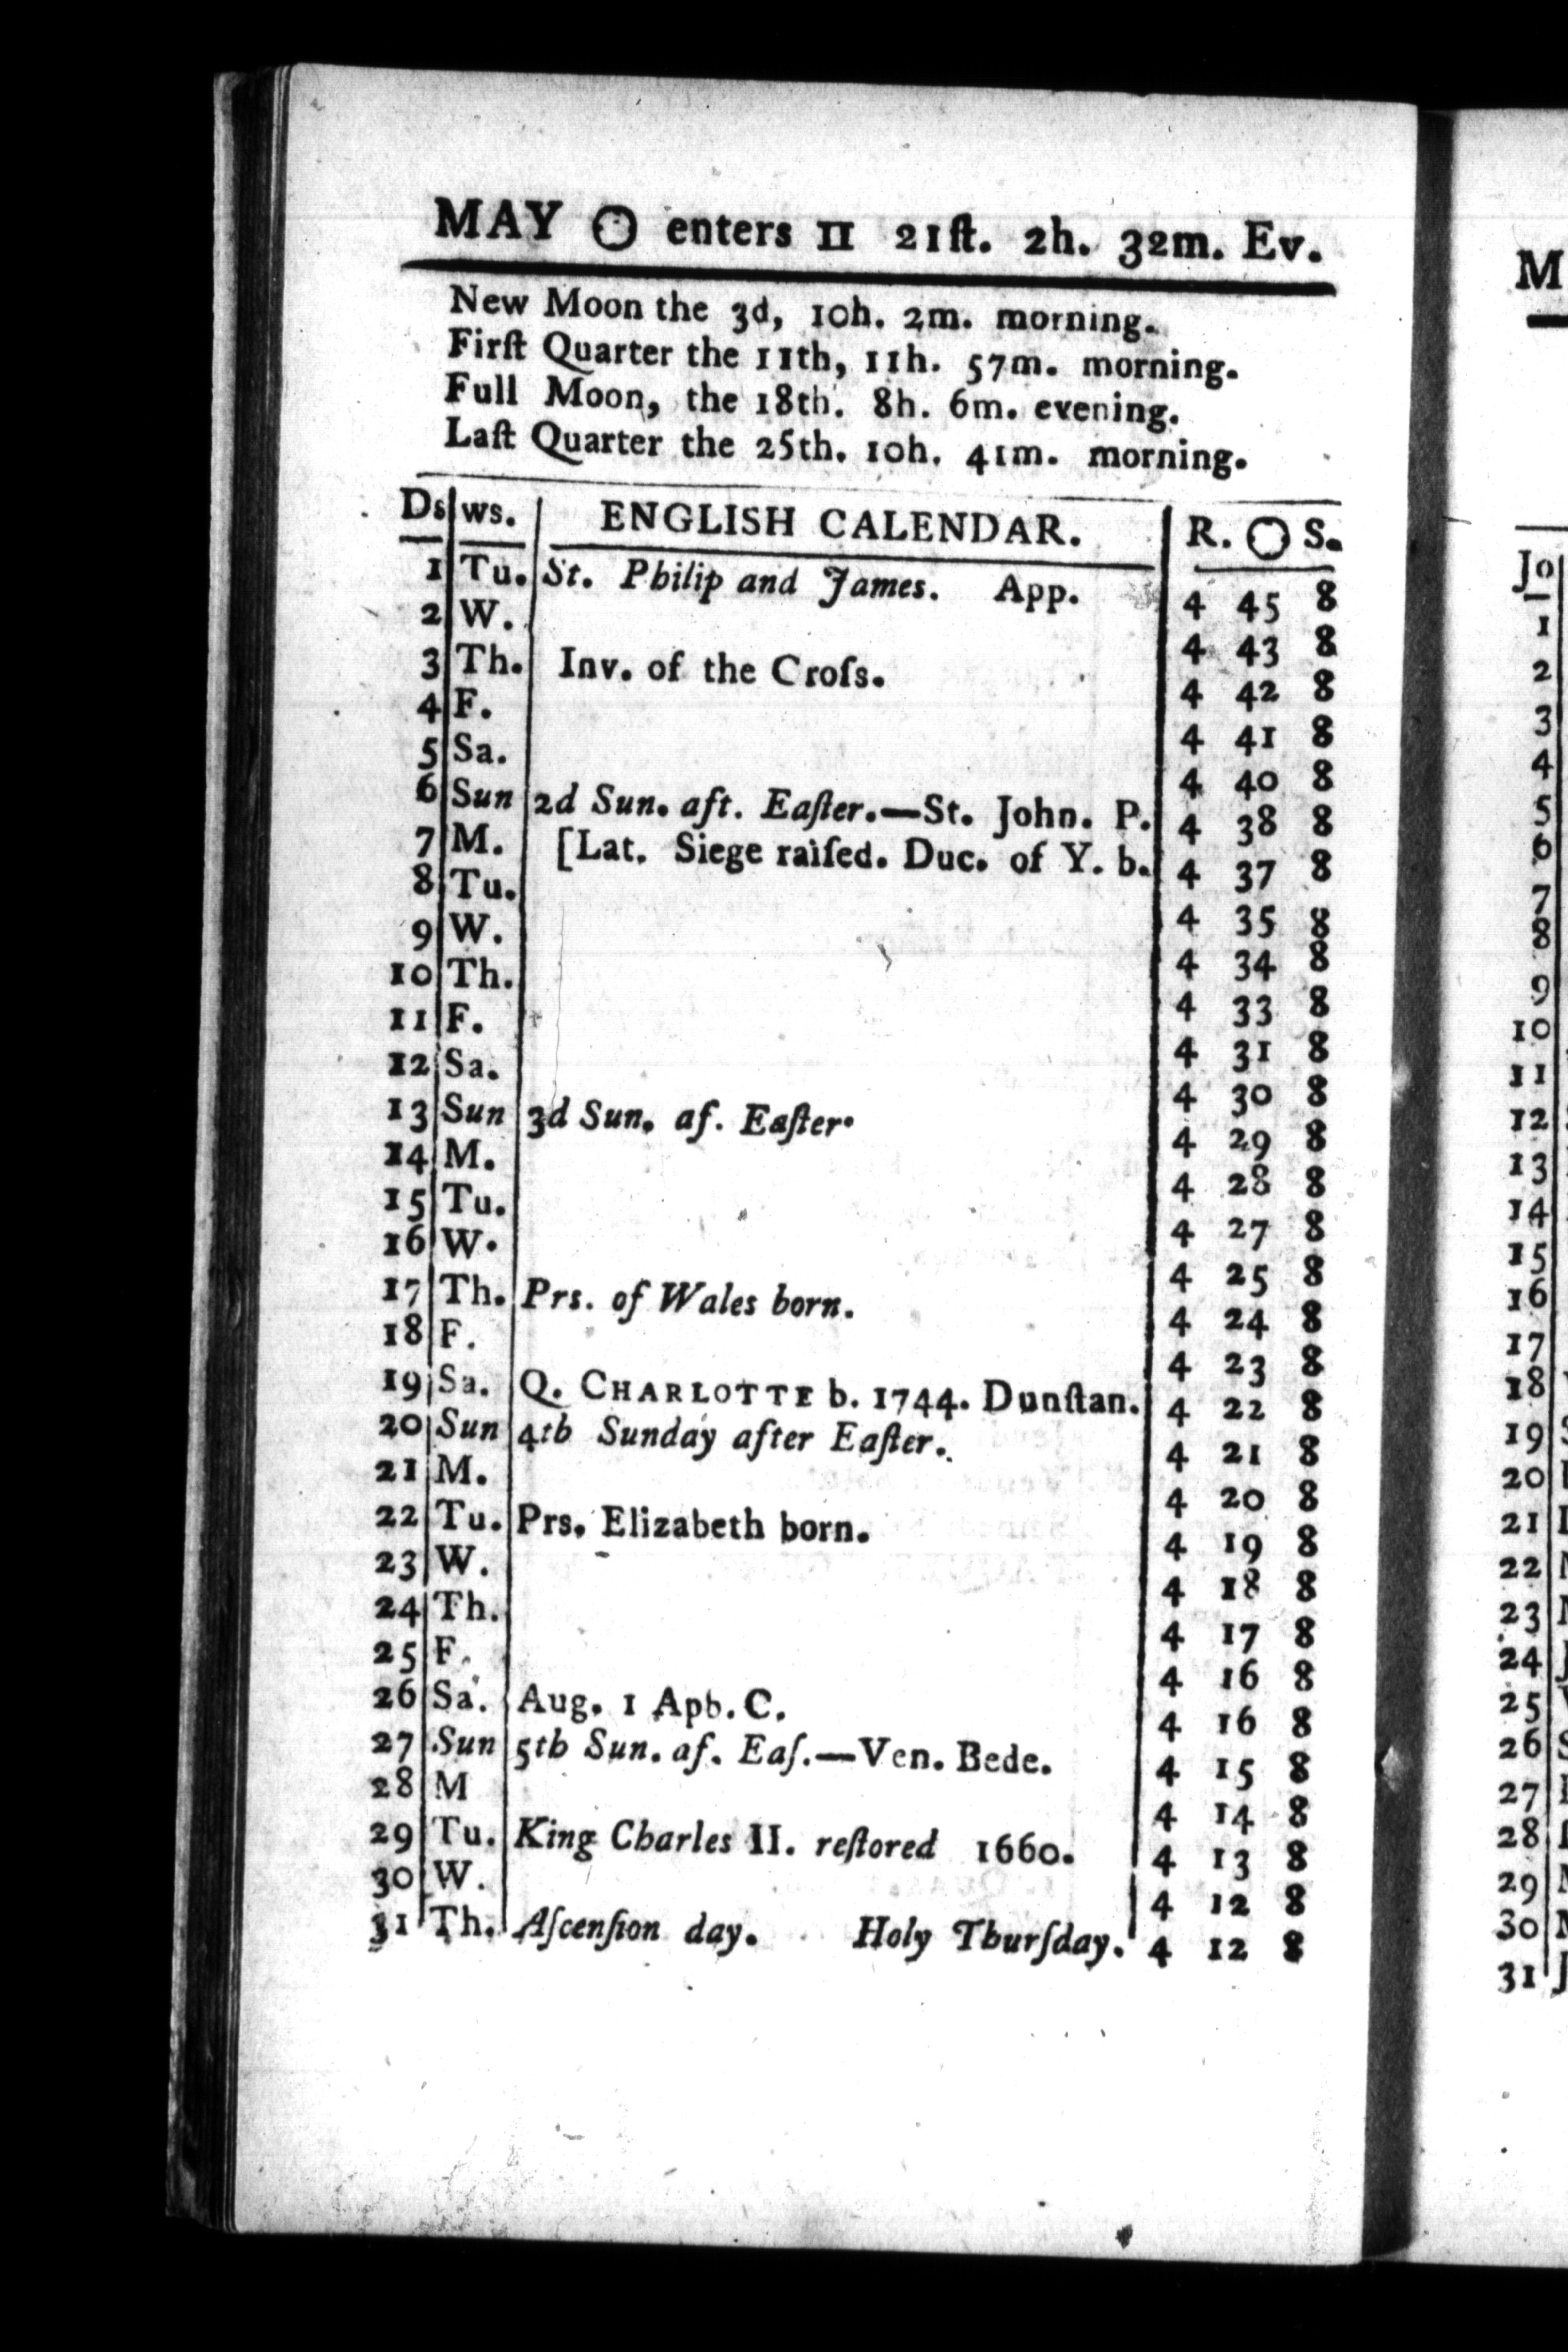 MAY ☉ enters II 21ſt. 2h. 32m. Ev.
New Moon the 3d, 10h. 2m. morning.
Firſt Quarter the 11th, 11h. 57m. morning.
Full Moon, the 18th. 8h. 6m. evening.
Laſt Quarter the 25th. 10h. 41m. morning.
Ds ws. ENGLISH CALENDAR. R. ☉ S.
1 Tu. St. Philip and James. App. 4 45 8
2 W. 4 43 8
3 Th. Inv. of the Croſs. 4 42 8
4 F. 4 41 8
5 Sa. 4 40 8
6 Sun 2d Sun. aft. Eaſter.—St. John. P. 4 38 8
7 M. [Lat. Siege raiſed. Duc. of Y. b. 4 37 8
8 Tu. 4 35 8
9 W. 4 34 8
10 Th. 4 33 8
11 F. 4 31 8
12 Sa. 4 30 8
13 Sun 3d Sun. af. Eaſter. 4 29 8
14 M. 4 28 8
15 Tu. 4 27 8
16 W. 4 25 8
17 Th. Prs. of Wales born. 4 24 8
18 F. 4 23 8
19 Sa. Q. CHARLOTTE b. 1744. Dunſtan. 4 22 8
20 Sun 4th Sunday after Eaſter. 4 21 8
21 M. 4 20 8
22 Tu. Prs. Elizabeth born. 4 19 8
23 W. 4 18 8
24 Th. 4 17 8
25 F. 4 16 8
26 Sa. Aug. 1 Apb. C. 4 16 8
27 Sun 5th Sun. af. Eaſ.—Ven. Bede. 4 15 8
28 M 4 14 8
29 Tu. King Charles II. reſtored 1660. 4 13 8
30 W. 4 12 8
31 Th. Aſcenſion day. Holy Thurſday. 4 12 8
M
Jo
1
2
3
4
5
6
7
8
9
10
11
12
13
14
15
16
17
18
19
20
21
22
23
24
25
26
27
28
29
30
31